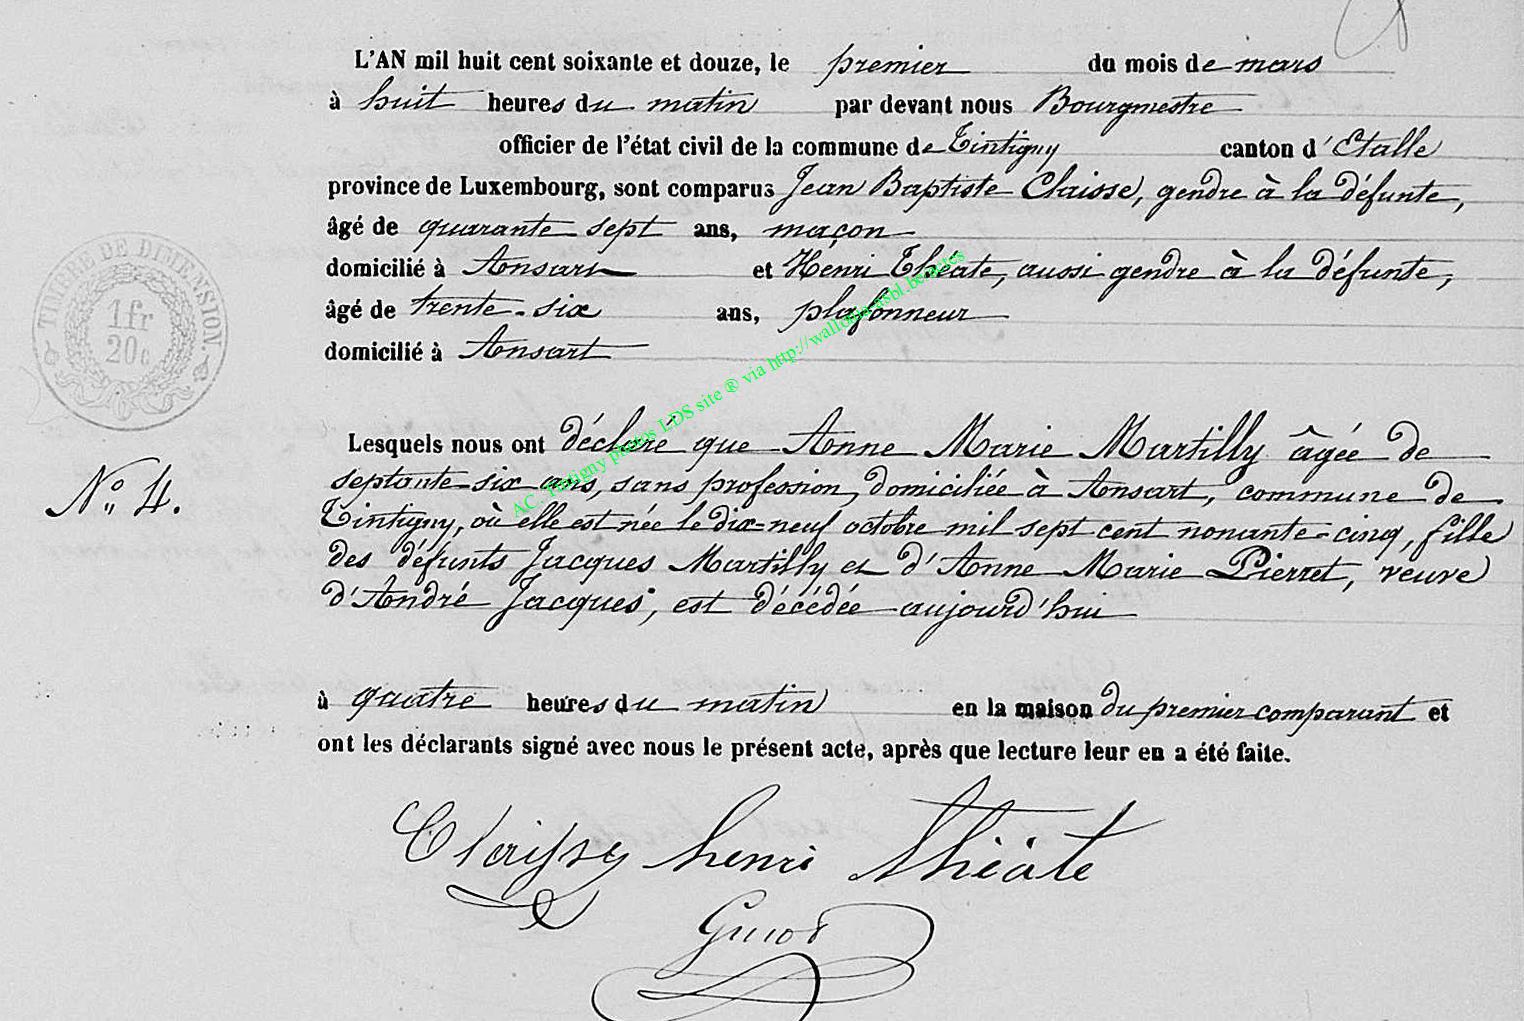 L'AN mil huit cent soixante et douze, le premier du mois de mars
à huit heures du matin par devant nous Bourgmestre
officier de l'état civil de la commune de Tintigny canton d'Etalle
province de Luxembourg, sont comparus Jean Baptiste Claisse, gendre à la défunte,
âgé de quarante sept ans, maçon
domicilié à Ansart et Henri Théate, aussi gendre à la défunte,
âgé de trente-six ans, plafonneur
domicilié à Ansart
TIMBRE DE DIMENSION.
1fr
20c
Lesquels nous ont déclaré que Anne Marie Martilly âgée de
septante-six ans, sans profession, domiciliée à Ansart, commune de
Tintigny, où elle est née le dix=neuf octobre mil sept cent nonante=cinq, fille
des défunts Jacques Martilly et d'Anne Marie Pierret, veuve
d'André Jacques, est décédée aujourd'hui
No 4.
à quatre heures du matin en la maison du premier comparant et
ont les déclarants signé avec nous le présent acte, après que lecture leur en a été faite.
henri théate
AC. Tintigny photos LDS site ® via http://wallonia-asbl.be/actes